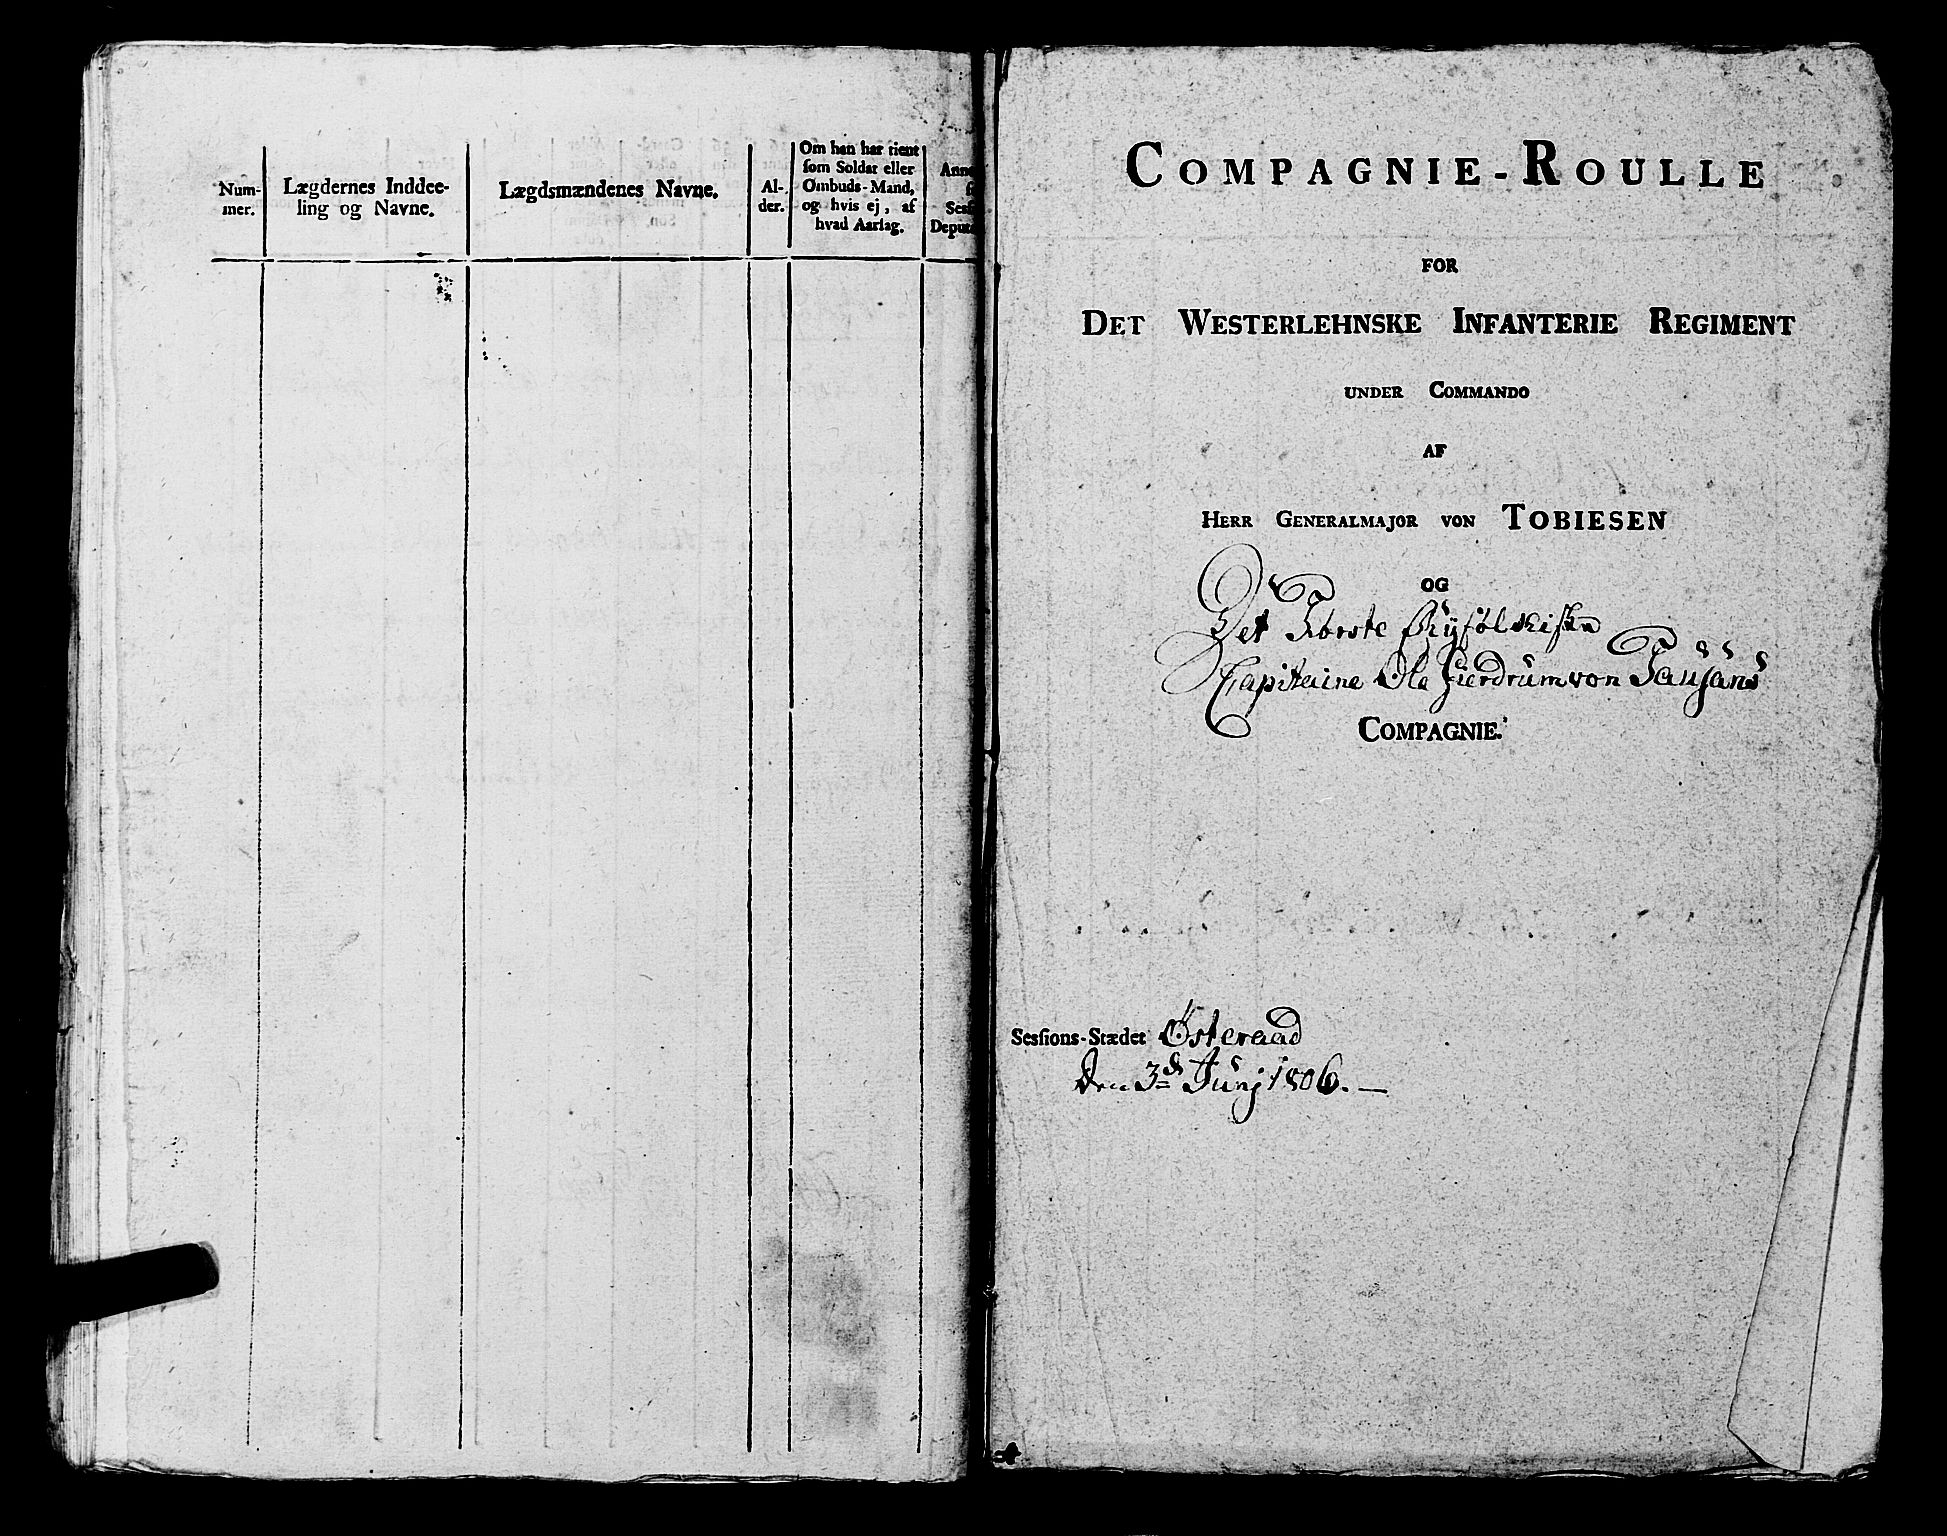 Num-
mer.
Lægdernes Inddee-
ling og Navne.
Lægdsmændenes Navne.
Al-
der.
Om han har tient
som Soldat eller
Ombuds-Mand,
og hvis ej, af
hvad Aarsag.
COMPAGNIE-ROULLE
FOR
DET WESTERLEHNSKE INFANTERIE REGIMENT
UNDER COMMANDO
AF
HERR GENERALMAJOR VON TOBIESEN
OG
Det Første Ryfølkiske
Capitaine Ole Gierdrum von Tausans
COMPAGNIE.
Sessions-Stædet Østeraad
Den 3de Junj 1806.